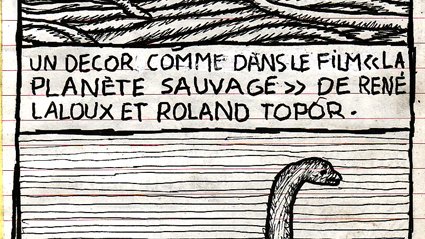 UN DECOR COMME DANS LE FILM «LA
PLANÈTE SAUVAGE» DE RENÉ
LALOUX ET ROLAND TOPOR.